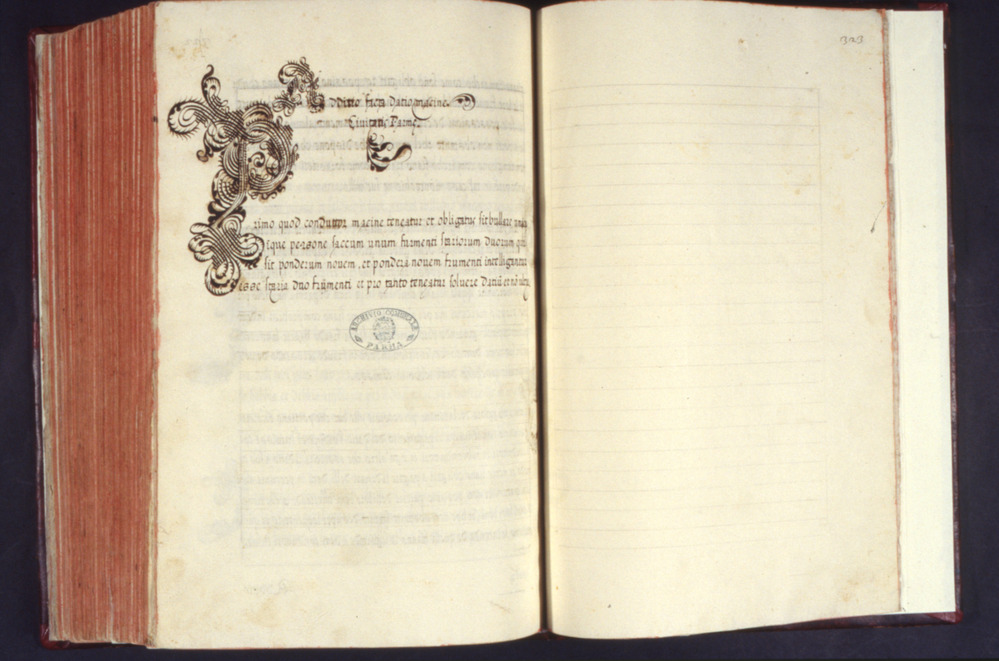 Additio facta Datio macine
Civitatis Parme
Primo quod conductor macine teneatur et obligatus sit bullare
ique persone saccum unum frumenti stariorum duorum qui
sit ponderum novem, et pondera novem frumenti intelligantur
esse staria duo frumenti et pro tanto teneatur solvere Datiū et nō ultra
ARCHIVIO COMUNALE
PARMA
323